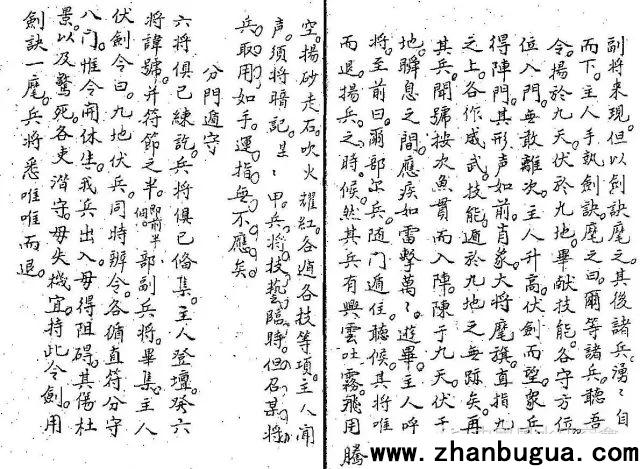 副將来現但以劍訣麾之其後諸兵湧〻自
而下主人手執劍訣麾之曰爾等諸兵聽吾
令揚於九天伏於九地畢献技能各守方位
位入門毋敢離次主人升高伏劍而望衆兵
得陣門其形声如前肖衆大将麾旗直指九
之上各作威武技能遁於九地之無跡矣再
其兵聞號按次魚貫而入陣陳于九天伏于
地瞬息之間應疾如雷擊萬〻遊畢主人呼
将至前曰爾部尔兵随门遁住聽候其將唯
而退揚兵之時候然其兵有興雲吐霧飛用騰
空揚砂走石吹火耀紅各逞各技等項主人聞
声須将暗記是〻甲兵将技藝臨時但召某将
兵取用如手運指無不應矣
分門遁守
六将俱已練訖兵将俱已俻集主人登壇癸六
将諱號并符節之半即前半個部副兵将畢集主人
伏劍令曰九地伏兵同時辦令各循直符分守
八门惟令開休生我兵出入毋得阻碍其傷杜
景以及驚死各吏潜守毋失機宜持此令劍用
劍訣一麾兵将悉唯唯而退
www.zhanbugua.com